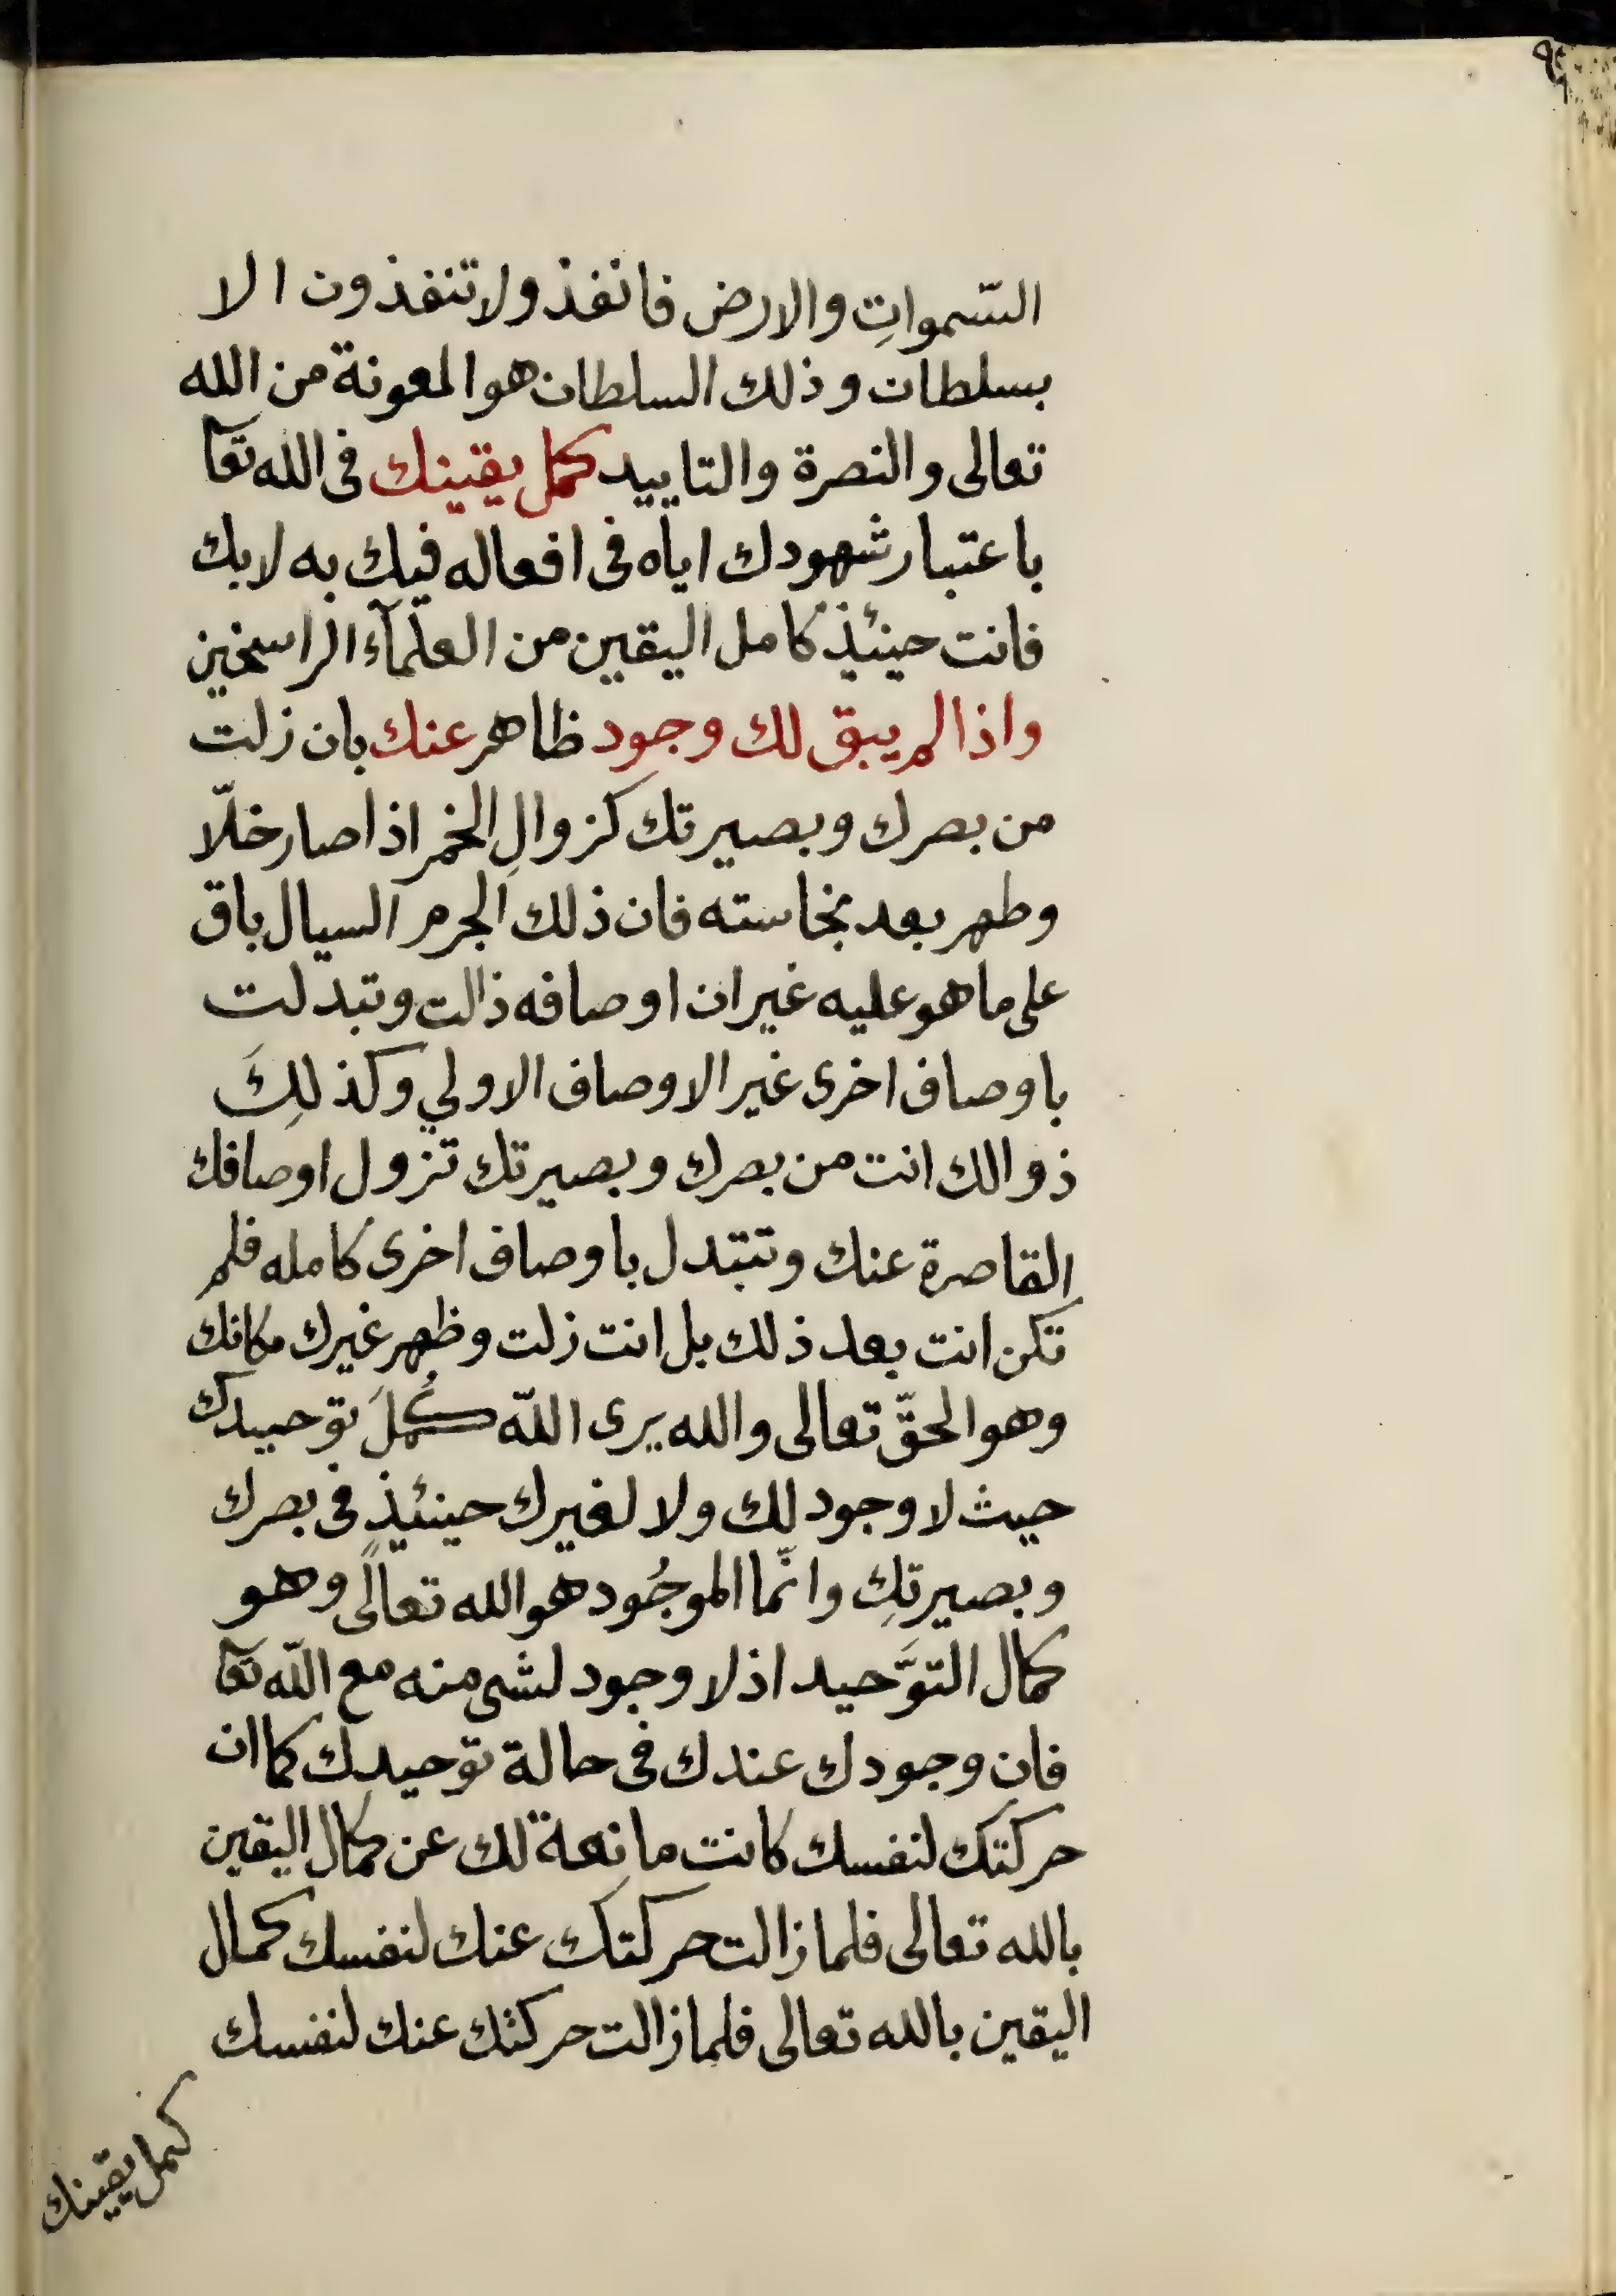 السّموات والارض فانفذ ولا تنفذون الا
بسلطان وذلك السلطان هو المعونة من الله
تعالى والنصرة والتاييد كمل يقينك فى الله تعآ
باعتبار شهودك اياه فى افعاله فيك به لا بك
فانت حينئذ كامل اليقين من العلمآء الراسخين
واذا لم يبق لك وجود ظاهر عنك بان زلت
من بصرك وبصيرتك كزوالِ الخمر اذا صار خلّا
وطهر بعد نجاسته فان ذلك الجرم السيال باق
على ما هو عليه غير ان اوصافه ذالت وتبدلت
باوصاف اخرى غير الاوصاف الاولي وكذلِكَ
ذوالك انت من بصرك وبصيرتك تزول اوصافك
القاصرة عنك وتتبدل باوصاف اخرى كامله فلم
تكن انت بعد ذلك بل انت زلت وظهر غيرك مكانك
وهو الحقّ تعالى والله يرى اللّه كُملَ توحيدك
حيث لا وجود لك ولا لغيرك حينئذٍ فى بصرك
وبصيرتكِ وانّما الموجُود هو الله تعالى وهو
كمال التوَّحيد اذ لا وجود لشى منه مع اللّه تعآ
فان وجودك عندك فى حالة توحيدك كما ان
حركتك لنفسك كانت مانعة لك عن كمال اليقين
بالله تعالى فلما زالت حركتك عنك لنفسك كمال
اليقين بالله تعالى فلما زالت حركتك عنك لنفسك
كمل يقينك